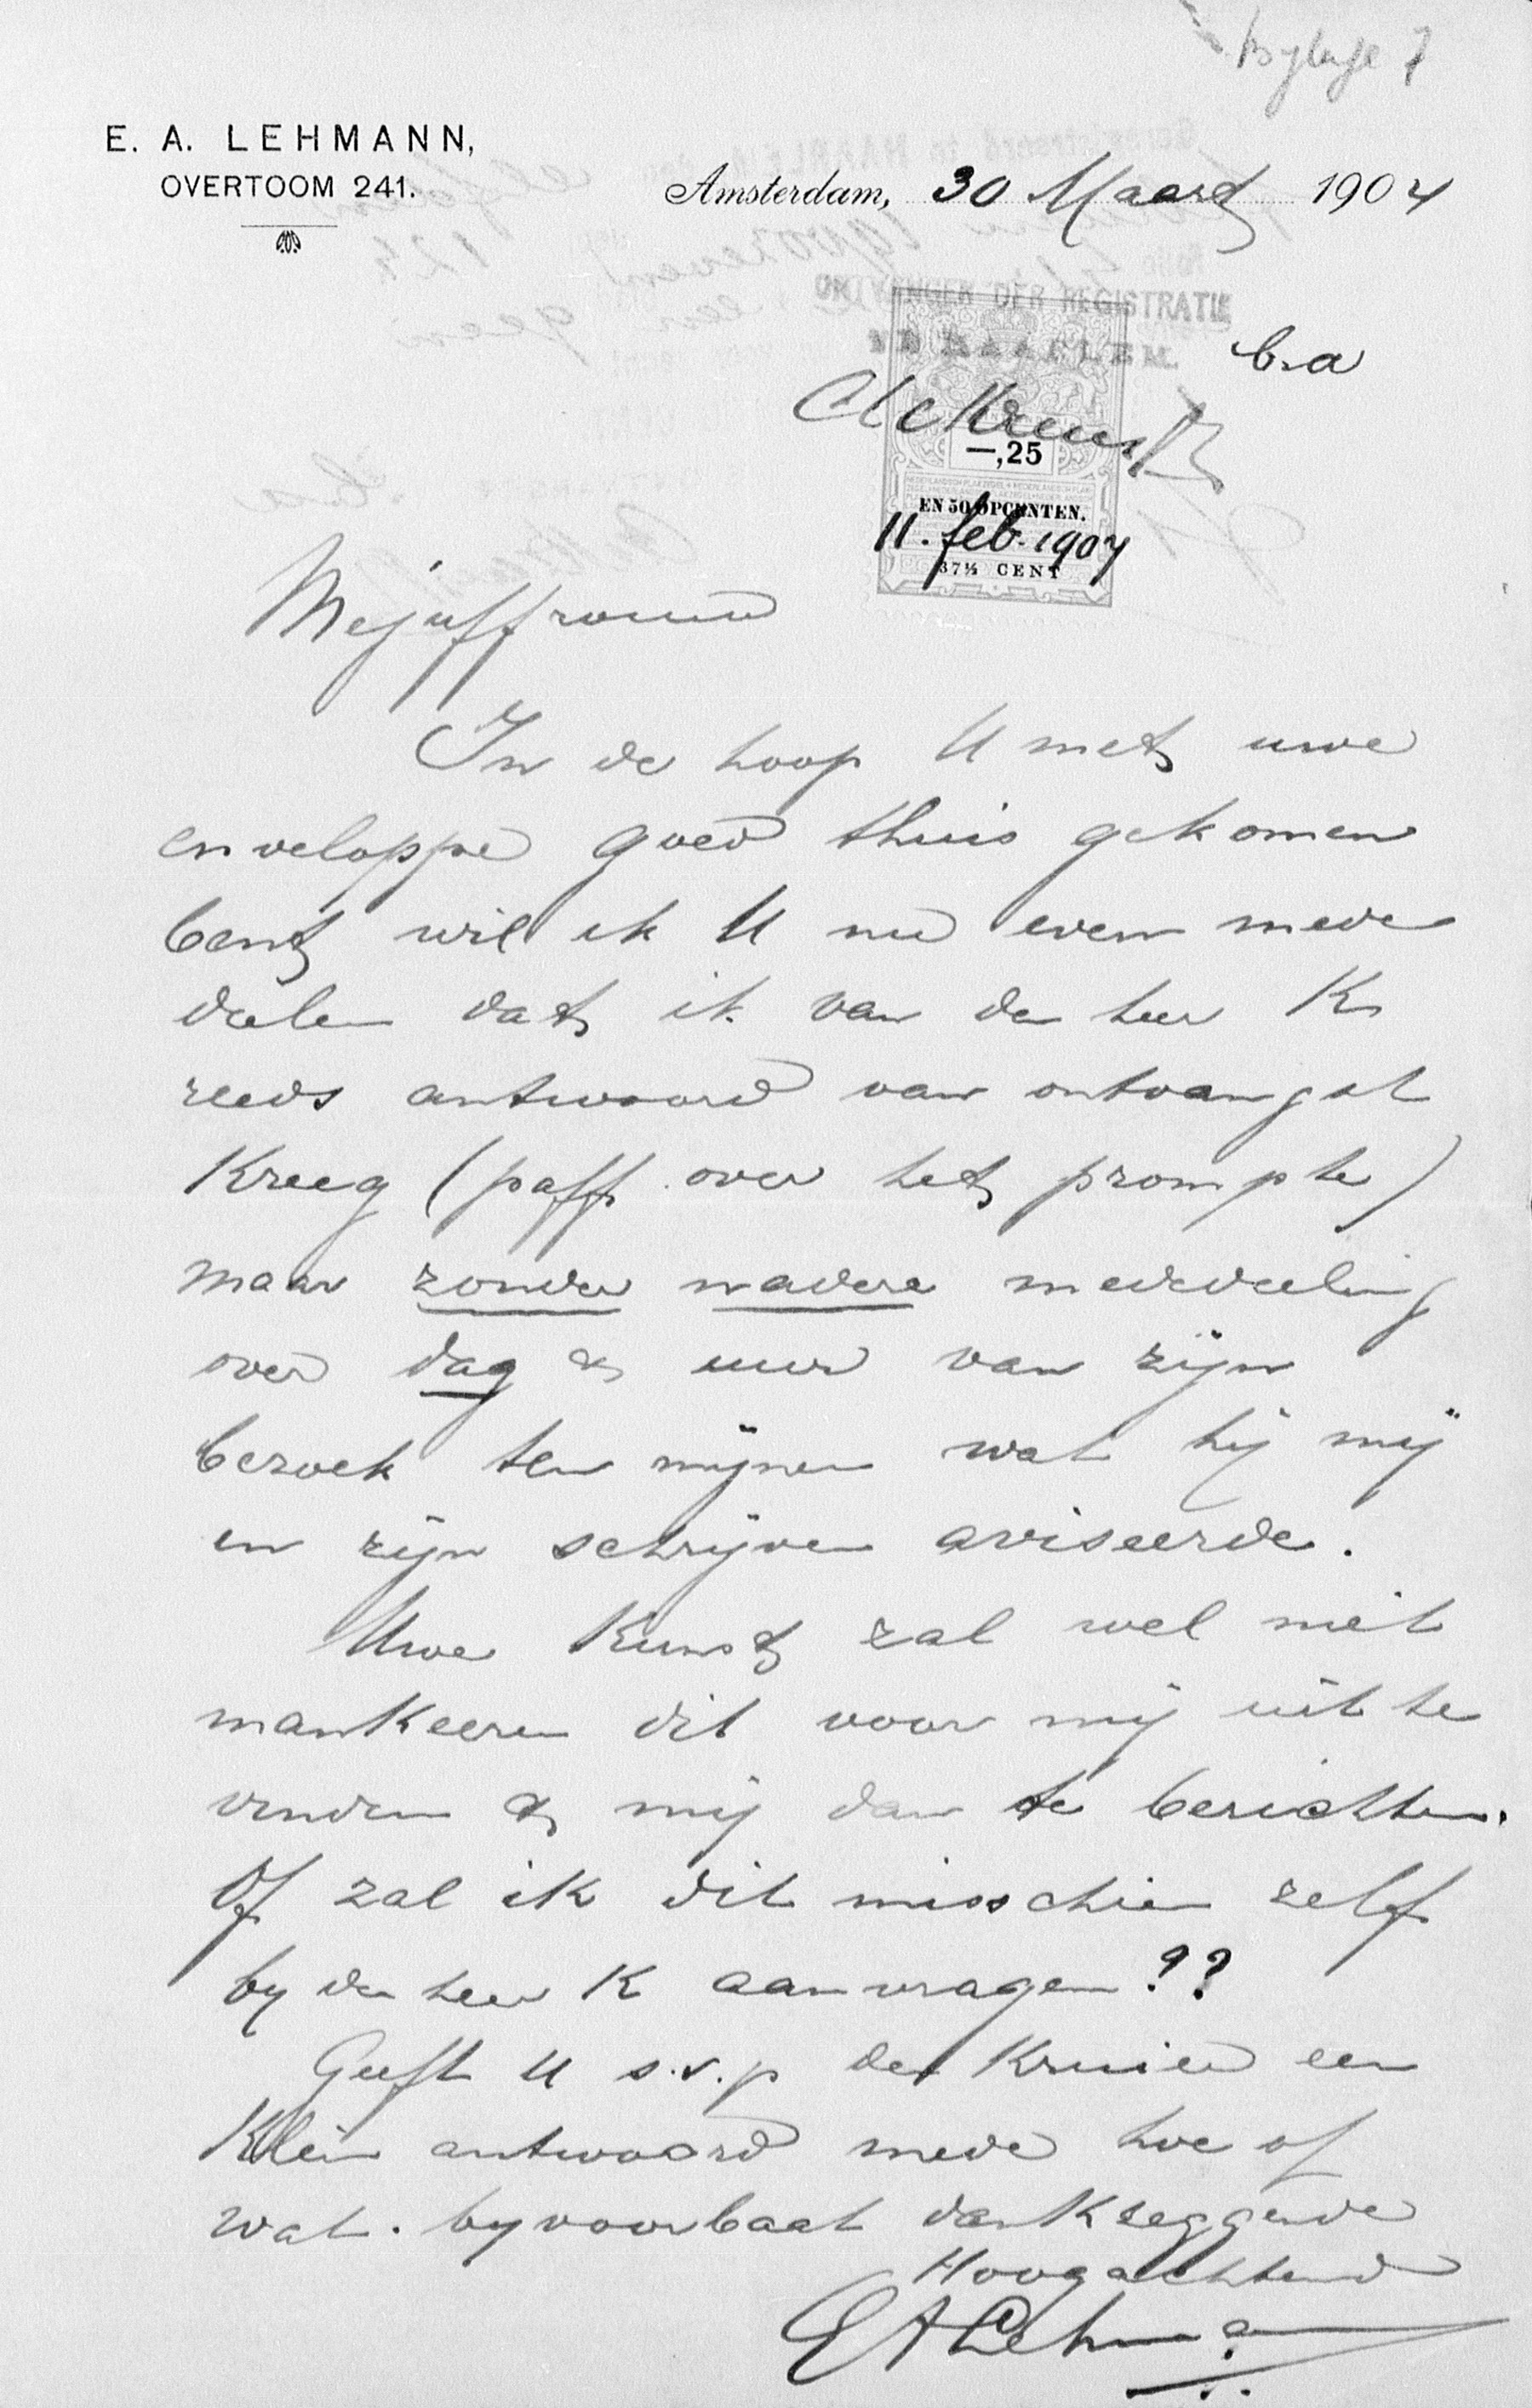 bylage 7
E. A. LEHMANN,
OVERTOOM 241.
Amsterdam, 30 Maart 1904
ONTVANGER DER REGISTRATIE
TE HAARLEM.
b.a
—,25
EN 50 OPCENTEN.
11. feb. 1907
37½ CENT
Mejuffrouw
In de hoop U met uwe
enveloppe goed thuis gekomen
bent wil ik U nu even mede
deelen dat ik van den heer K
reeds antwoord van ontvangst
kreeg (paff over het prompte)
maar zonder nadere mededeeling
over dag & uur van zijn
bezoek ten mijnen wat hij mij
in zijn schrijven aviseerde.
Uwe kunst zal wel niet
mankeeren dit voor mij uit te
vinden & mij dan te berichten.
Of zal ik dit misschien zelf
by den heer K aanvragen??
Geeft U s.v.p den Kruier een
klein antwoord mede hoe of
wat. byvoorbaat dankzeggende
Hoogachtend
EALehmann